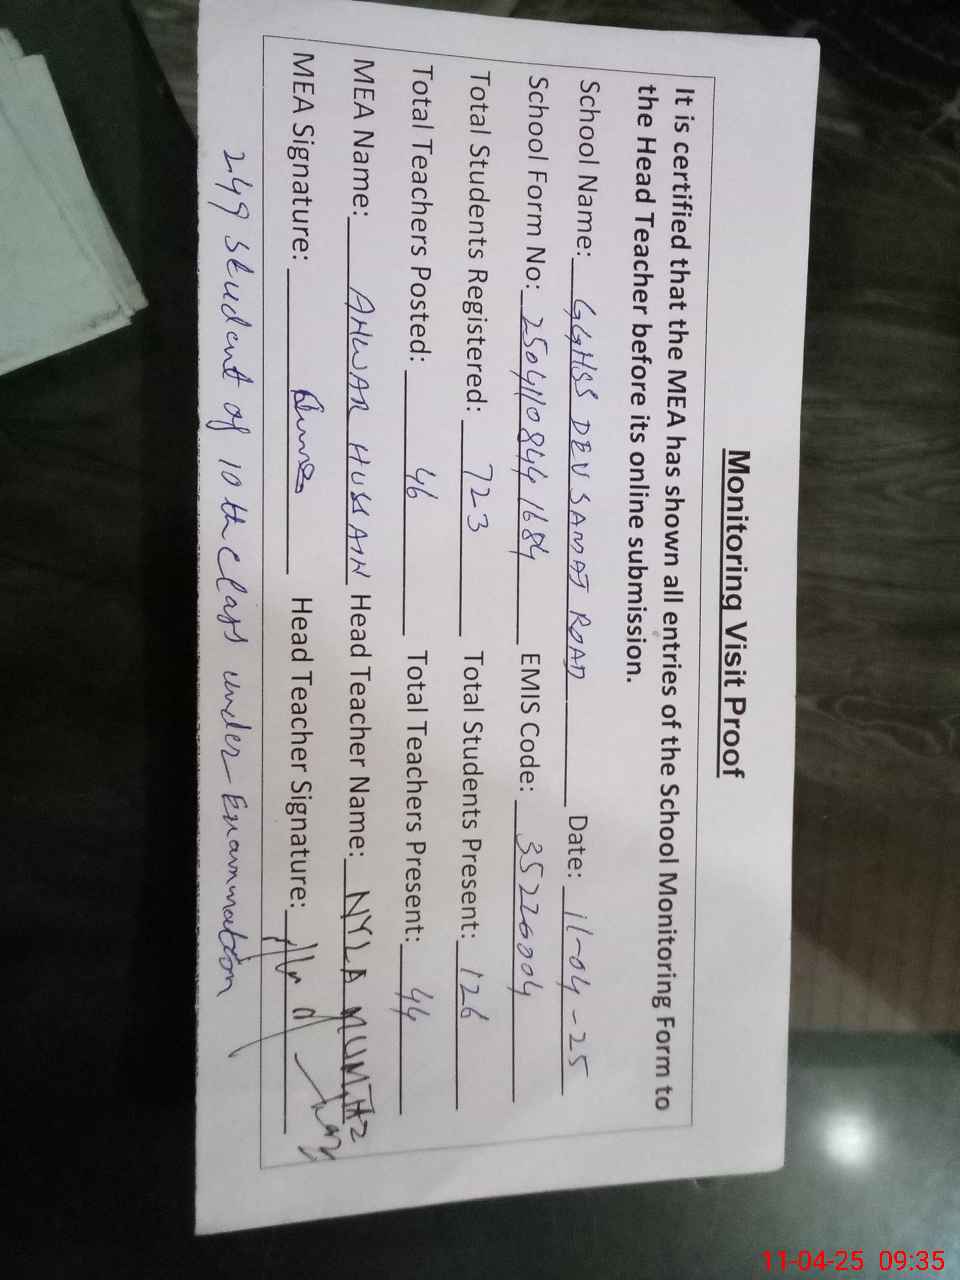 Monitoring Visit Proof
It is certified that the MEA has shown all entries of the School Monitoring Form to
the Head Teacher before its online submission.
School Name: GGHSS DEV SAMAJ ROAD Date: 11-04-25
School Form No: 25041108441684 EMIS Code: 35226004
Total Students Registered: 723 Total Students Present: 126
Total Teachers Posted: 46 Total Teachers Present: 44
MEA Name: ANWAR HUSSAIN Head Teacher Name: NYLA MUMTAZ
MEA Signature: Head Teacher Signature:
249 student of 10 the class under Examination
11-04-25 09:35